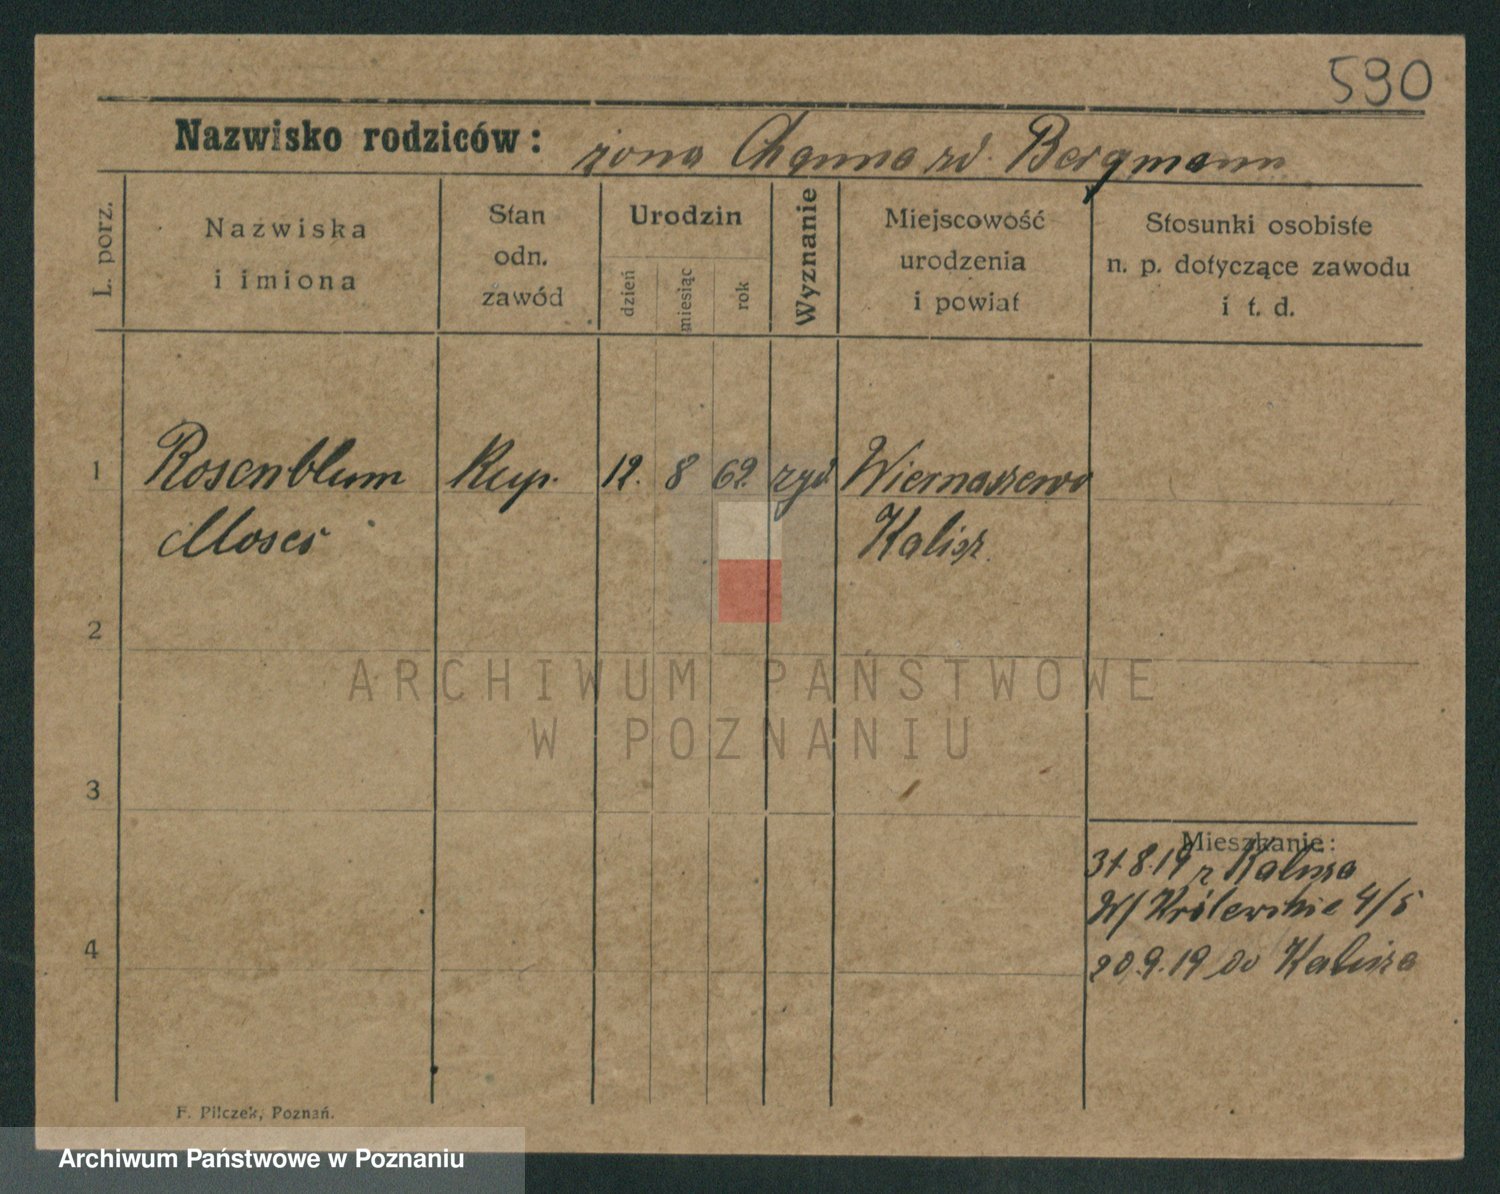 590
Nazwisko rodziców: żona Channa zd. Bergmann
L. porz.
Nazwiska
i imiona
Stan
odn.
zawód
Urodzin
dzień
miesiąc
rok
Wyznanie
Miejscowość
urodzenia
i powiat
Stosunki osobiste
n. p. dotyczące zawodu
i t. d.
1 Rosenblum Kup. 12. 8 62 żyd. Wiernaszewo
Moses Kalisz
2
ARCHIWUM PAŃSTWOWE
W POZNANIU
3
Mieszkanie:
31.8.19 z Kalisza
W/ Królewskie 4/5
4
20.9.19 do Kalisza
F. Pilczek, Poznań.
Archiwum Państwowe w Poznaniu